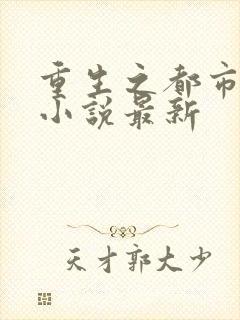 重生之都市
小說最新
天才郭大少